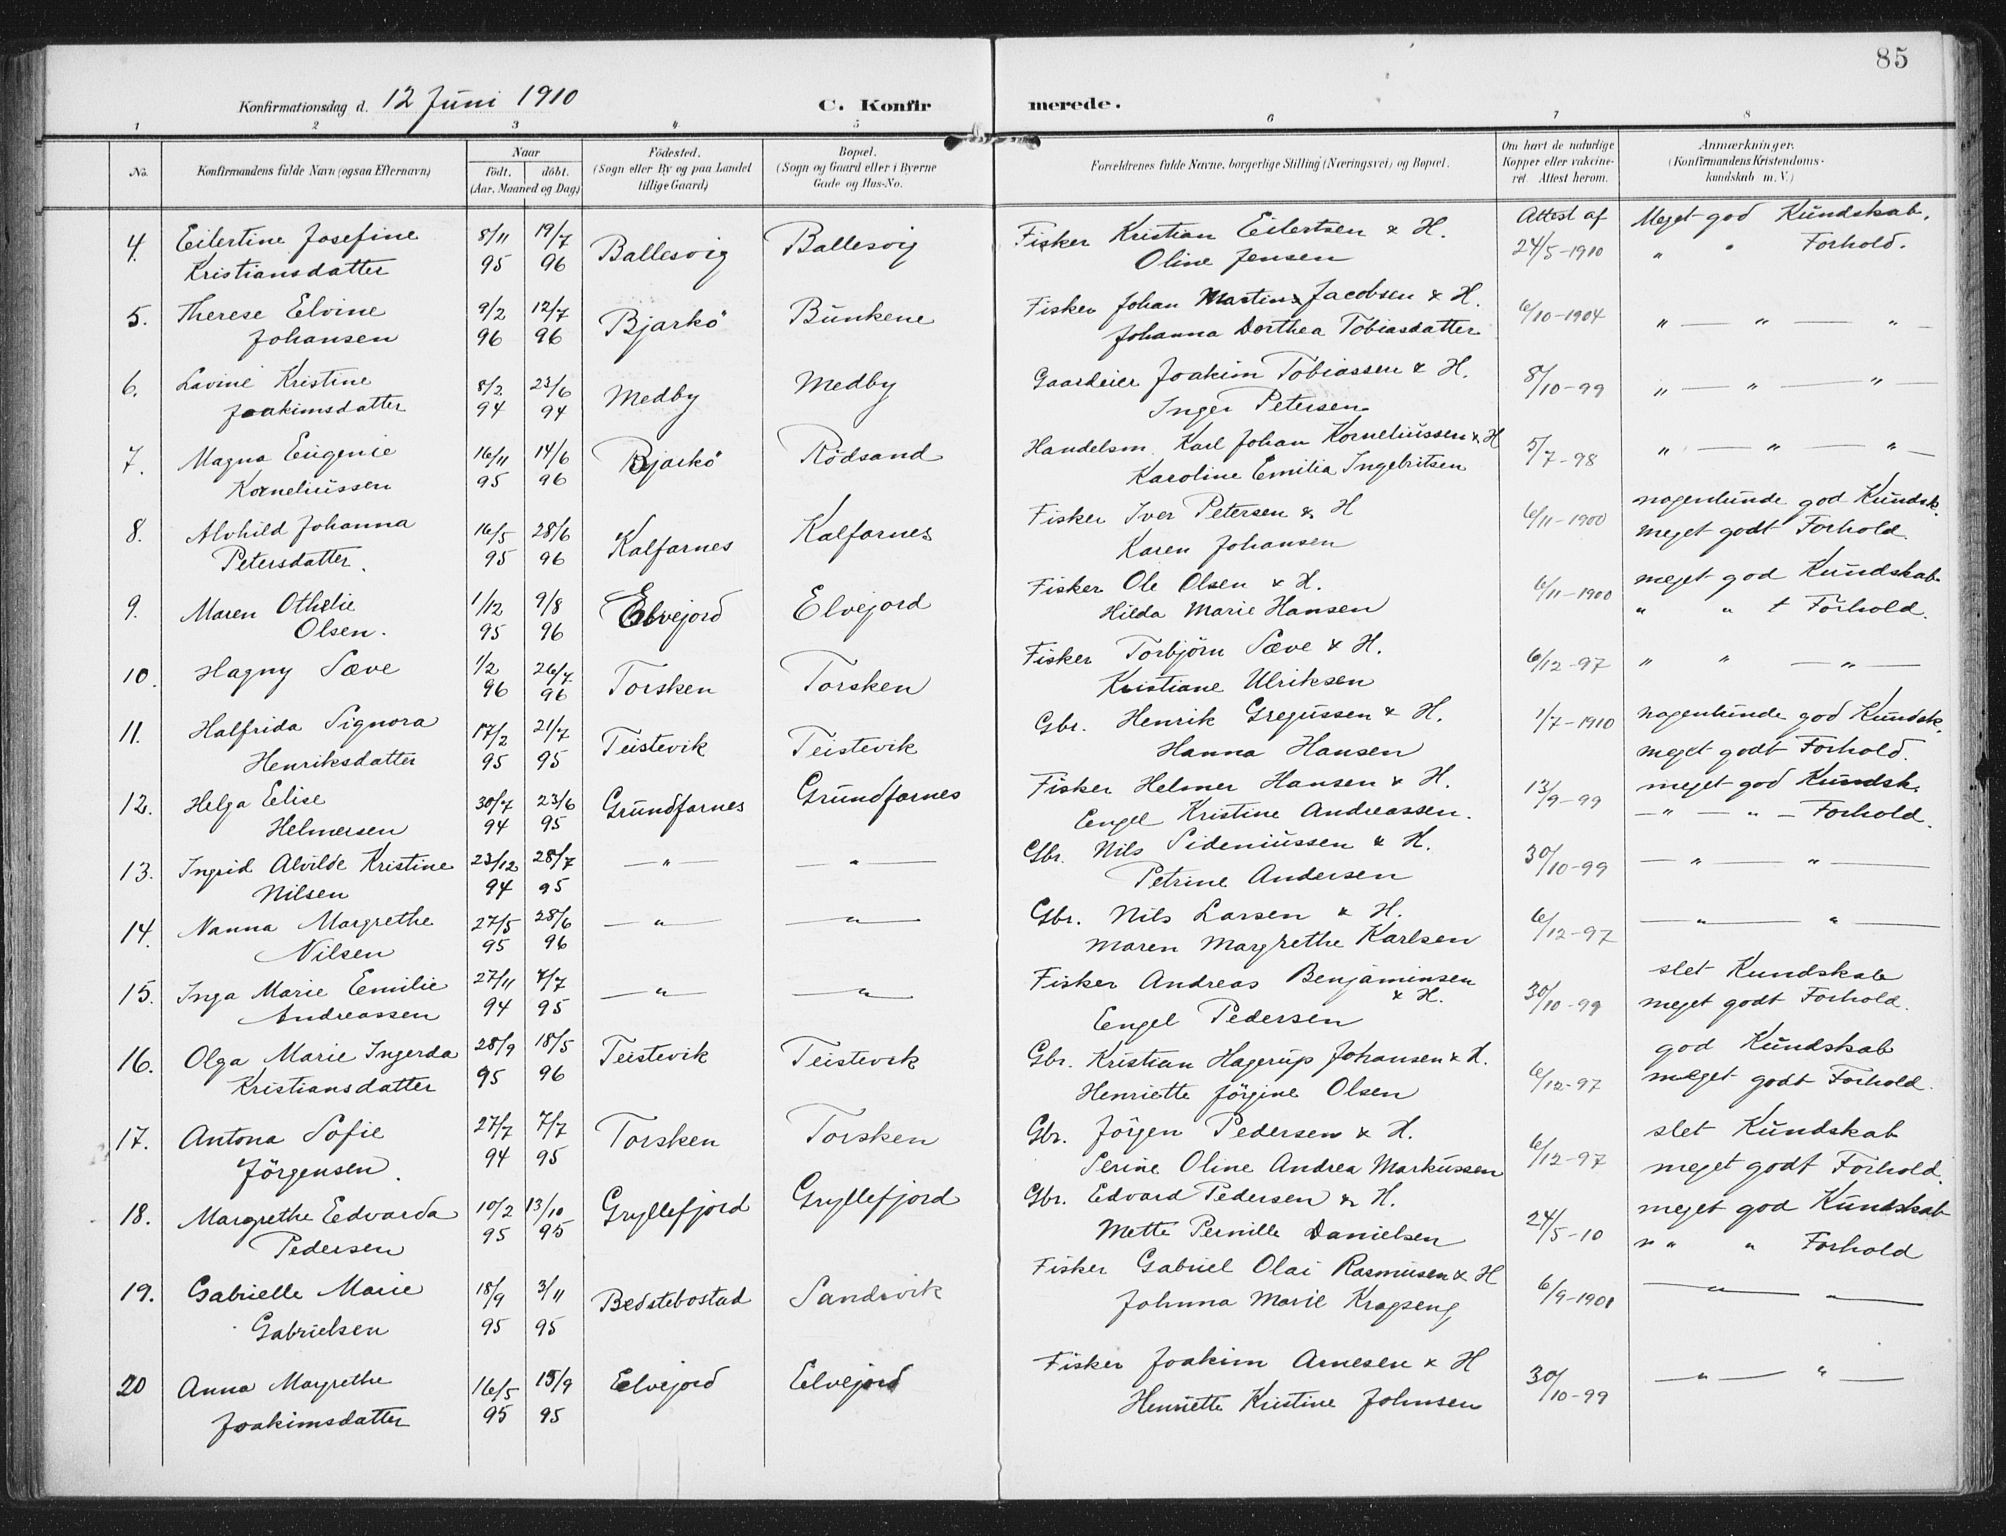 85
Konfirmationsdag d. 12 Juni 1910 C. Konfirmerede.
1 2 3 4 5 6 7 8
No. Konfirmandens fulde Navn (ogsaa Efternavn) Naar födt. döbt. (Aar, Maaned og Dag) Födested. (Sogn eller By og paa Landet tillige Gaard) Bopæl. (Sogn og Gaard eller i Byerne Gade og Hus-No. Forældrenes fulde Navne, borgerlige Stilling (Næringsvei) og Bopæl. Om havt de naturlige Kopper eller vakcineret. Attest herom. Anmærkninger. (Konfirmandens Kristendomskundskab m. V.)
4. Eilertine Josefine 8/11 19/7 Ballesvig Ballesvig Fisker Kristian Eilertsen & H. Attest af Meget god Kundskab.
Kristiansdatter 95 96 Oline Jensen 24/5-1910 " " Forhold.
5. Therese Elvine 9/2 12/7 Bjarkö Bunkene Fisker Johan Martin Jacobsen & H. 6/10-1904 " — " — " —
Johansen 96 96 Johanna Dorthea Tobiasdatter
6. Lavine Kristine 8/2 23/6 Medby Medby Gaardeier Joakim Tobiassen & H. 8/10-99 " — " — " —
Joakimsdatter 94 94 Inger Petersen
7. Magna Eugenie 16/11 14/6 Bjarkö Rödsand Handelsm. Karl Johan Korneliussen & H 5/7-98 " — " — " —
Korneliussen 95 96 Karoline Emilia Ingebritsen
8. Alvhild Johanna 16/5 28/6 Kalfarnes Kalfarnes Fisker Iver Petersen & H 6/11-1900 nogenlunde god Kundsk.
Petersdatter. 95 96 Karen Johansen meget godt Forhold.
9. Maren Othelie 1/12 9/8 Elvejord Elvejord Fisker Ole Olsen & H. 6/11-1900 meget god Kundskab
Olsen. 95 96 Hilda Marie Hansen " " t Forhold.
10. Hagny Sæve 1/2 26/7 Torsken Torsken Fisker Torbjörn Sæve & H. 6/12-97 " " — " —
96 96 Kristiane Ulriksen
11. Halfrida Signora 17/2 21/7 Teistevik Teistevik Gbr. Henrik Gregussen & H. 1/7-1910 nogenlunde god Kundsk.
Henriksdatter 95 95 Hanna Hansen meget godt Forhold.
12. Helga Elise 30/7 23/6 Grundfarnes Grundfarnes Fisker Helmer Hansen & H. 13/9-99 meget god Kundsk.
Helmersen 94 95 Engel Kristine Andreassen. — " — " — Forhold.
13. Ingrid Alvilde Kristine 23/12 28/7 — " — — " — Gbr. Nils Sideniussen & H. 30/10-99 — " — " —
Nilsen 94 95 Petrine Andersen
14. Nanna Margrethe 27/5 28/6 — " — — " — Gbr. Nils Larsen & H. 6/12-97 — " — " —
Nilsen 95 96 Maren Margrethe Karlsen
15. Inga Marie Emilie 27/11 7/7 — " — — " — Fisker Andreas Benjaminsen & H. 30/10-99 slet Kundskab
Andreassen 94 95 Engel Pedersen meget godt Forhold.
16. Olga Marie Ingerda 28/9 18/5 Teistevik Teistevik Gbr. Kristian Hagerup Johansen & H. 6/12-97 god Kundskab
Kristiansdatter 95 96 Henriette Jörgine Olsen meget godt Forhold.
17. Antona Sofie 27/7 7/7 Torsken Torsken Gbr. Jörgen Pedersen & H. 6/12-97 slet Kundskab
Jörgensen. 94 95 Serine Oline Andrea Markussen meget godt Forhold.
18. Margrethe Edvarda 10/2 13/10 Gryllefjord Gryllefjord Gbr. Edvard Pedersen & H. 24/5-10 meget god Kundskab
Pedersen 95 95 Mette Pernille Danielsen " " " Forhold
19. Gabrielle Marie 18/9 3/11 Bedstebostad Sandsvik Fisker Gabriel Olai Rasmusen & H 6/9-1901 — " — " —
Gabrielsen 95 95 Johnna Marie Kragseng
20 Anna Margrethe 16/5 15/9 Elvejord Elvejord Fisker Joakim Arnesen & H 30/10-99 — " — " —
Joakimsdatter 95 95 Henriette Kristine Johnsen